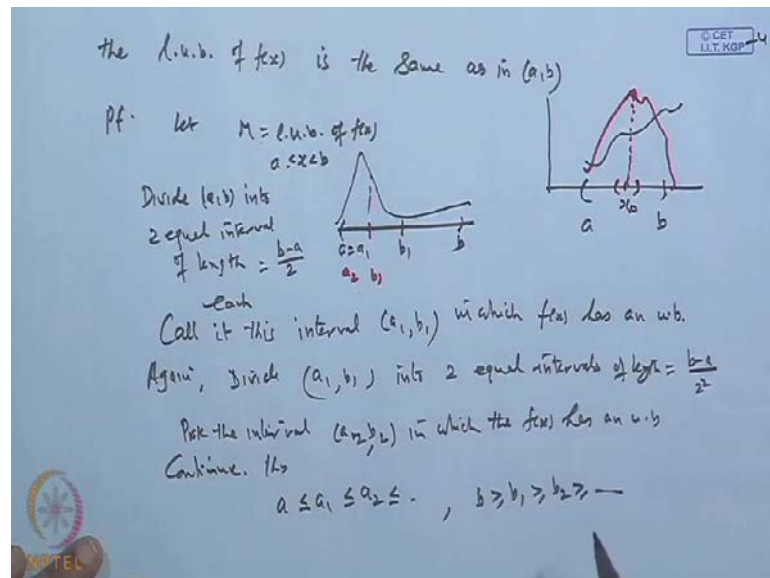 the l.u.b. of f(x) is the same as in (a,b)
© CET
I.I.T. KGP
4
Pf. Let M = l.u.b. of f(x)
a ≤ x ≤ b
Divide (a,b) into
2 equal interval
of length = b-a/2
each
a=a₁ b₁ b
a₂ b₂
a x₀ b
Call it this interval (a₁,b₁) in which f(x) has an u.b.
Again, Divide (a₁,b₁) into 2 equal intervals of length = b-a/2²
Pick the interval (a₂,b₂) in which the f(x) has an u.b
Continue. this
a ≤ a₁ ≤ a₂ ≤ . , b ≥ b₁ ≥ b₂ ≥ —
NPTEL